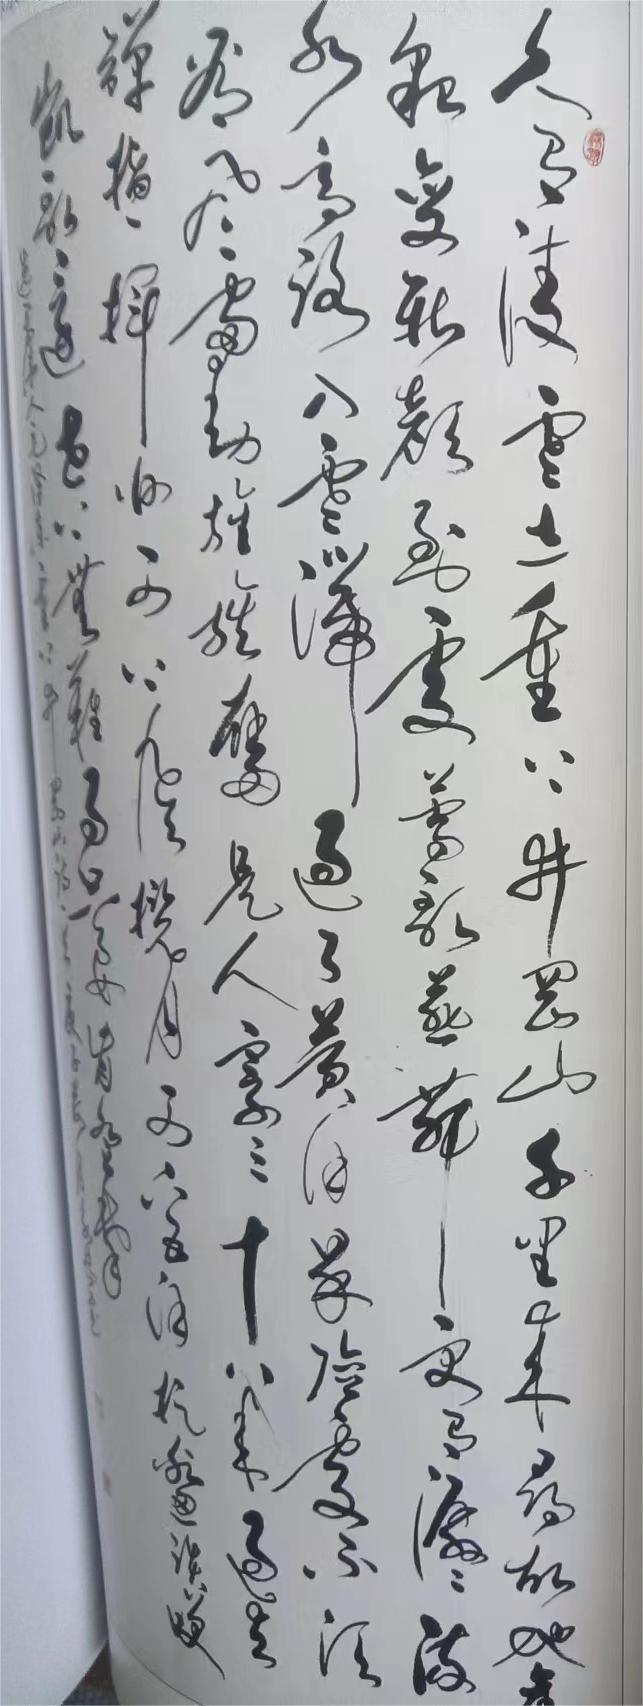 久有凌云志重上井冈山千里来寻故地旧
貌变新颜到处莺歌燕舞更有潺潺流
水高路入云端过了黄洋界险处不须
看风雷动旌旗奋是人寰三十八年过去
弹指一挥间可上九天揽月可下五洋捉鳖谈笑
凯歌还世上无难事只要肯登攀